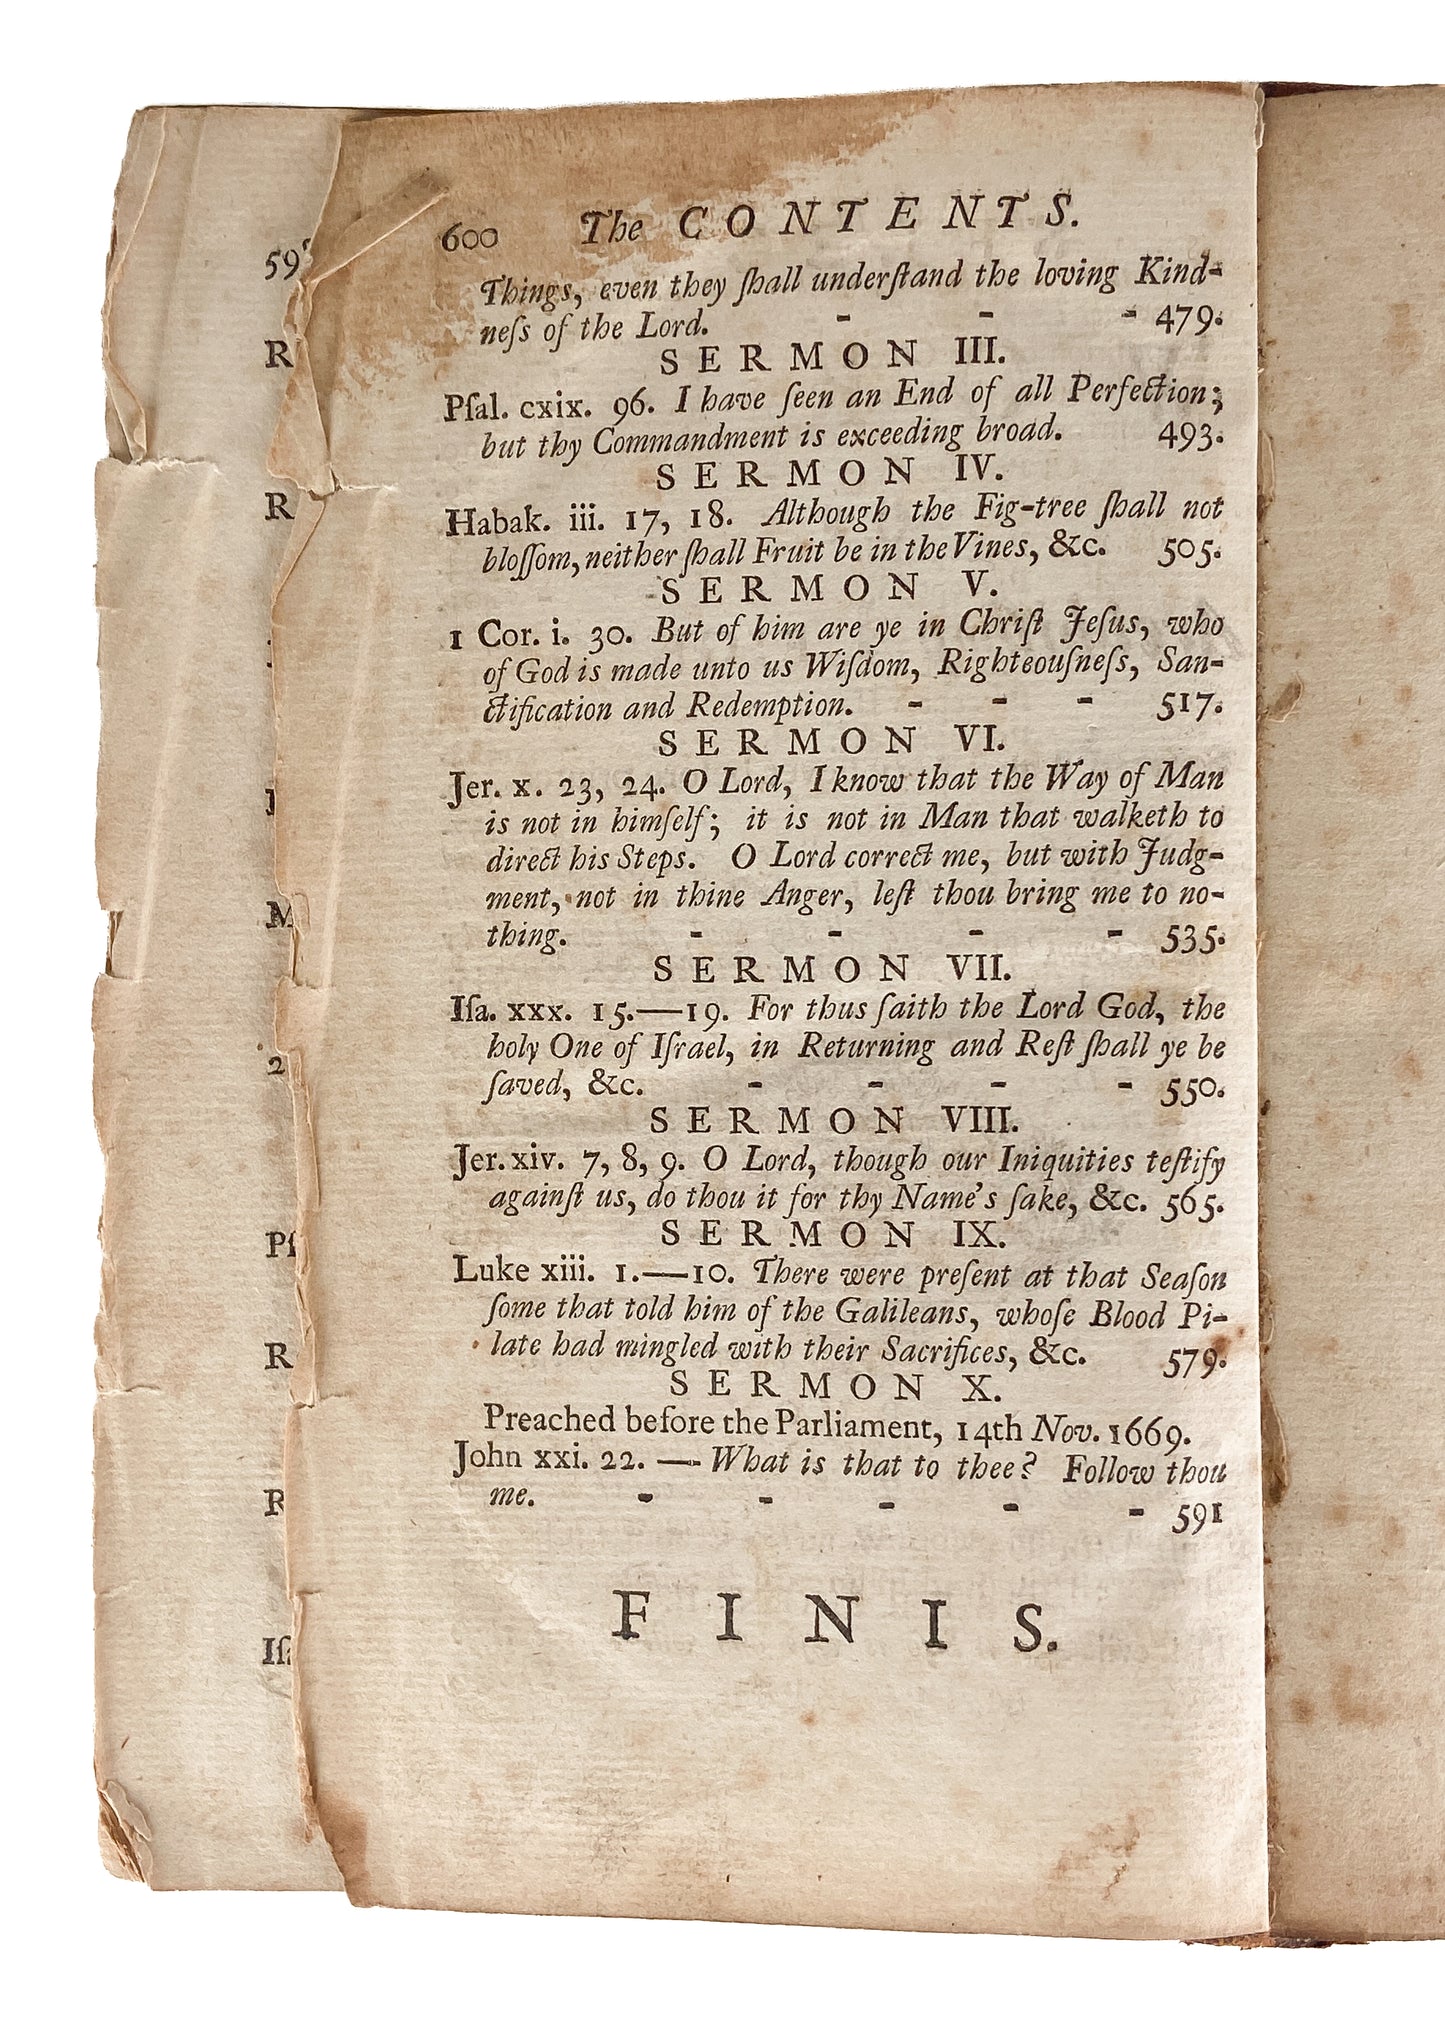 600 The CONTENTS.
Things, even they ſhall underſtand the loving Kind-
neſs of the Lord. - - - 479.
SERMON III.
Pſal. cxix. 96. I have ſeen an End of all Perfection;
but thy Commandment is exceeding broad. 493.
SERMON IV.
Habak. iii. 17, 18. Although the Fig-tree ſhall not
bloſſom, neither ſhall Fruit be in the Vines, &c. 505.
SERMON V.
1 Cor. i. 30. But of him are ye in Chriſt Jeſus, who
of God is made unto us Wiſdom, Righteouſneſs, San-
ctification and Redemption. - - - 517.
SERMON VI.
Jer. x. 23, 24. O Lord, I know that the Way of Man
is not in himſelf; it is not in Man that walketh to
direct his Steps. O Lord correct me, but with Judg-
ment, not in thine Anger, leſt thou bring me to no-
thing. - - - - 535.
SERMON VII.
Iſa. xxx. 15.—19. For thus ſaith the Lord God, the
holy One of Iſrael, in Returning and Reſt ſhall ye be
ſaved, &c. - - - - 550.
SERMON VIII.
Jer. xiv. 7, 8, 9. O Lord, though our Iniquities teſtify
againſt us, do thou it for thy Name's ſake, &c. 565.
SERMON IX.
Luke xiii. 1.—10. There were preſent at that Seaſon
ſome that told him of the Galileans, whoſe Blood Pi-
late had mingled with their Sacrifices, &c. 579.
SERMON X.
Preached before the Parliament, 14th Nov. 1669.
John xxi. 22. — What is that to thee? Follow thou
me. - - - - - 591
FINIS.
59
R
R
M
2
R
R